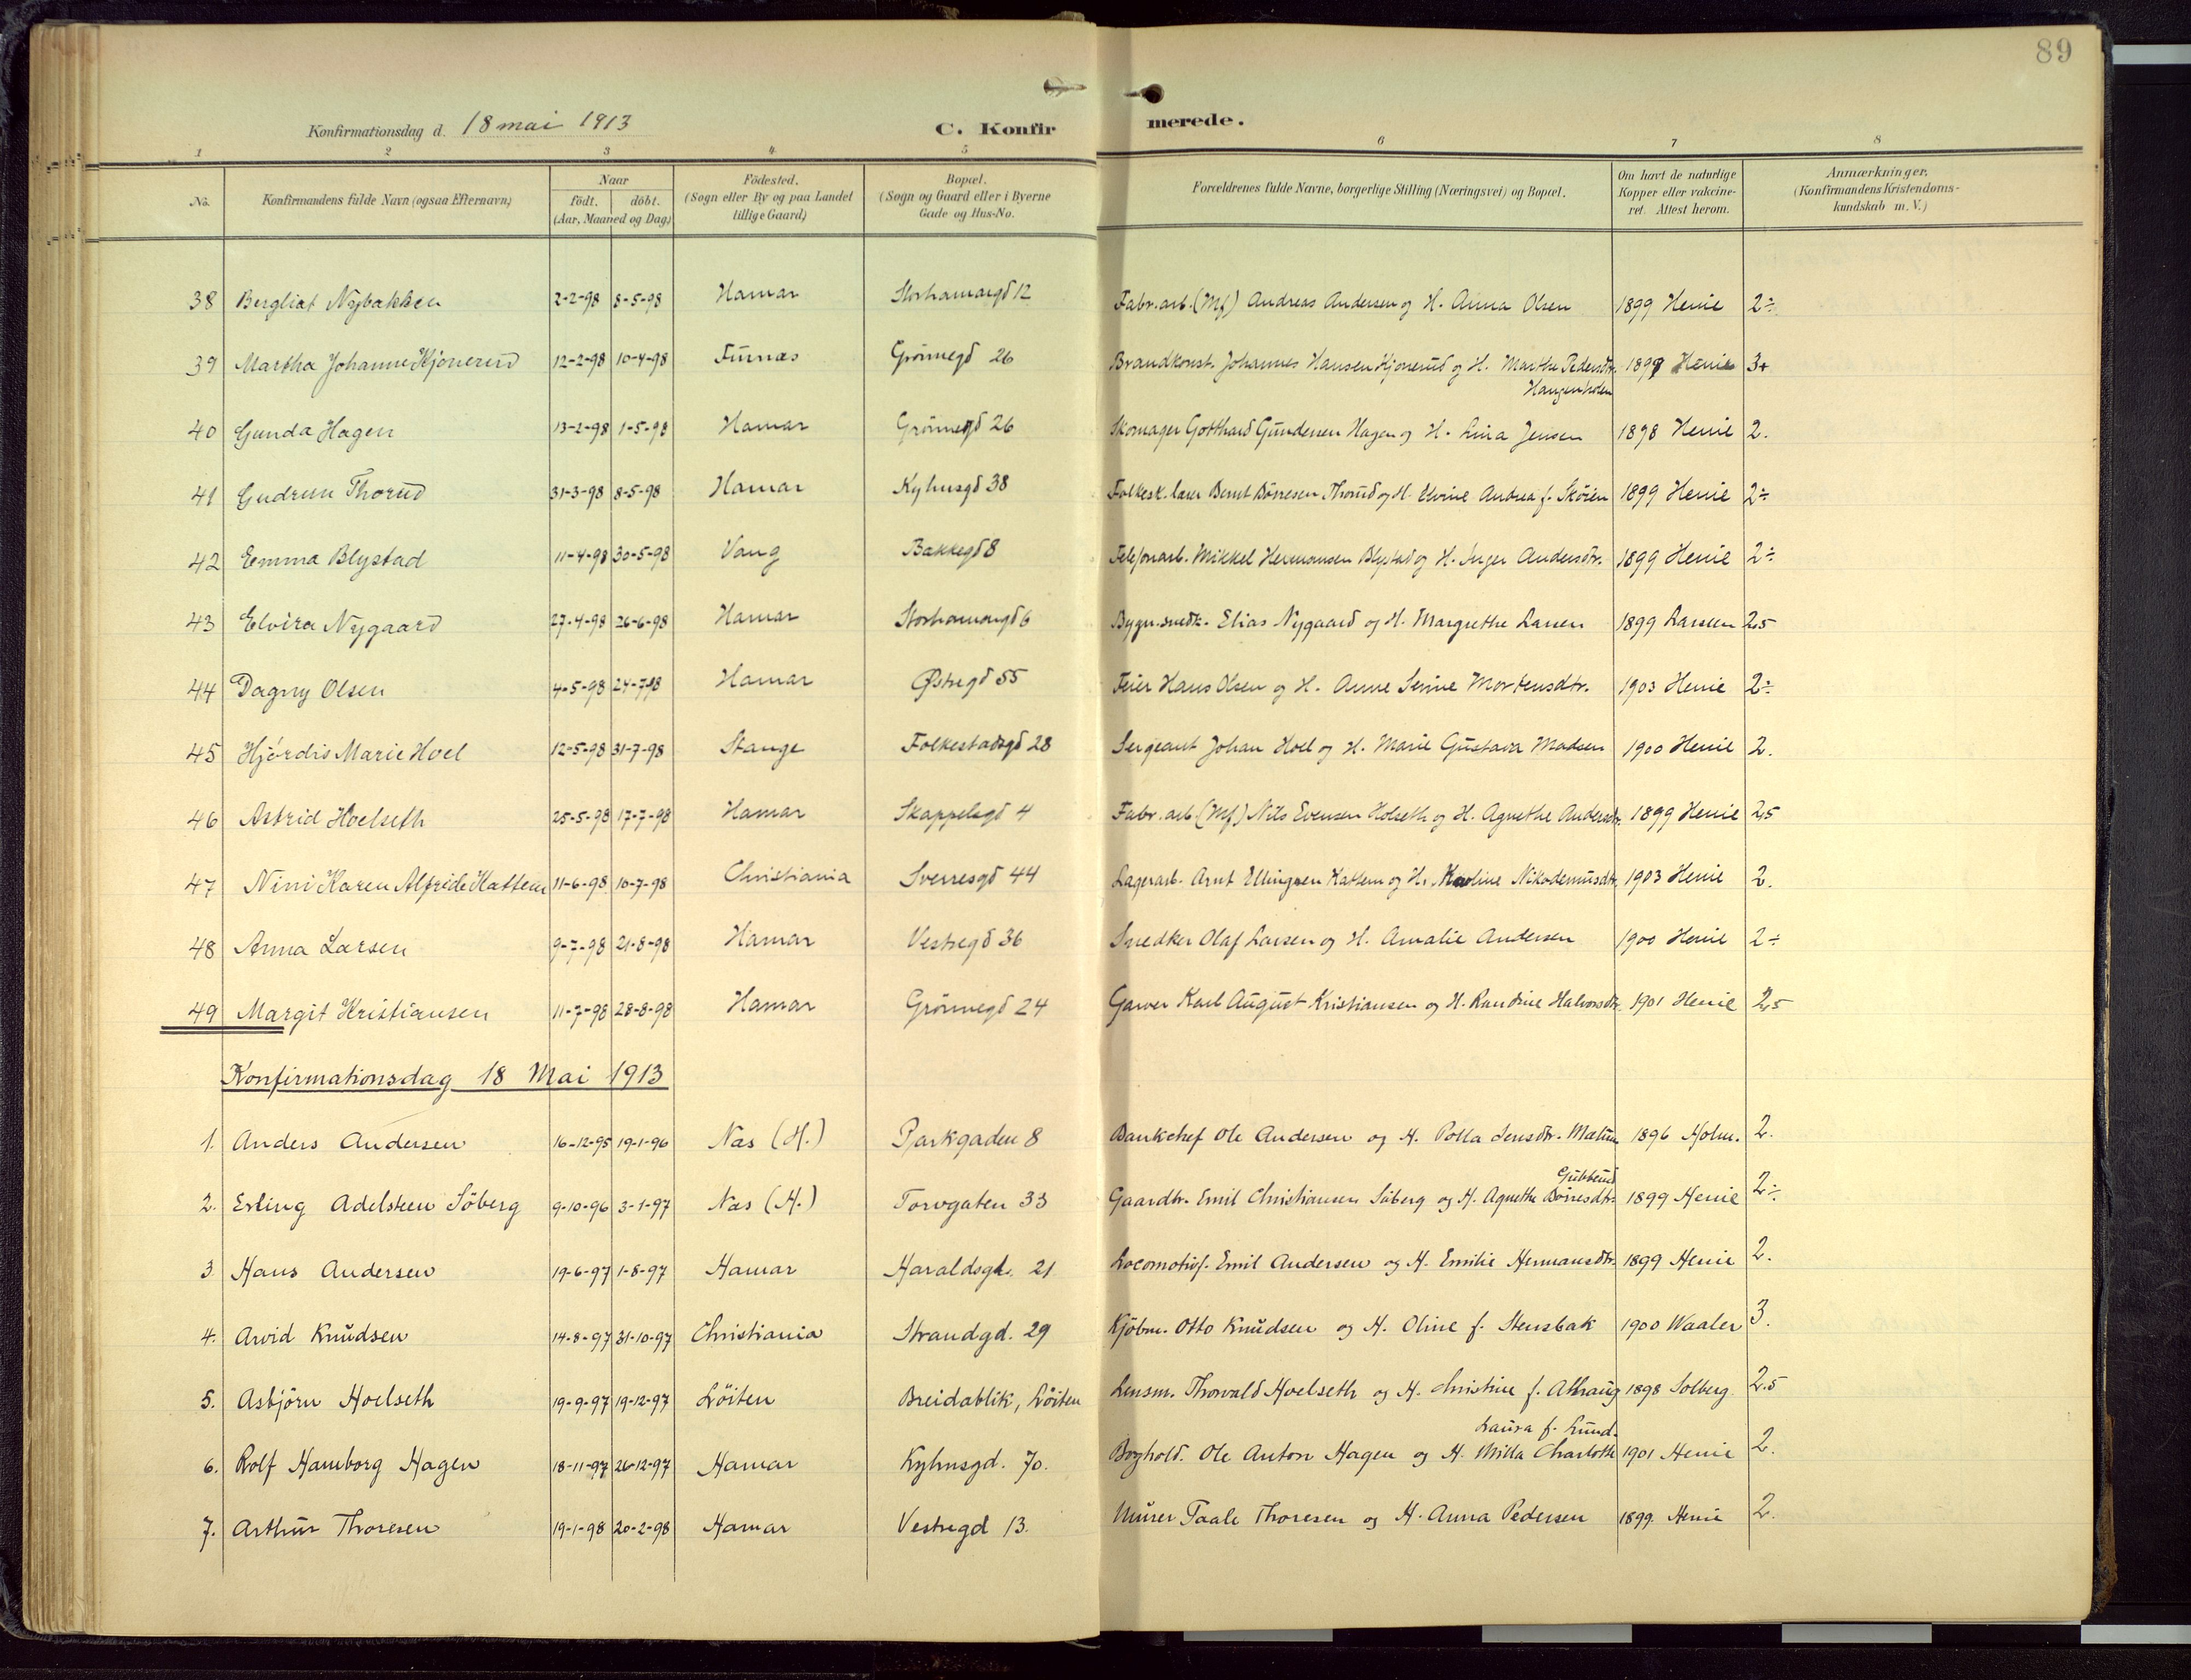 89
Konfirmationsdag d. 18 mai 1913 C. Konfirmerede.
1 2 3 4 5 6 7 8
No. Konfirmandens fulde Navn (ogsaa Efternavn) Naar födt. döbt. (Aar, Maaned og Dag) Födested. (Sogn eller By og paa Landet tillige Gaard) Bopæl. (Sogn og Gaard eller i Byerne Gade og Hus-No. Forældrenes fulde Navne, borgerlige Stilling (Næringsvei) og Bopæl. Om havt de naturlige Kopper eller vakcineret. Attest herom. Anmærkninger. (Konfirmandens Kristendomskundskab m. V.)
38 Bergliot Nybakken 2-2-98 8-5-98 Hamar Storhamargd 12 Fabr.arb. (Mf) Andreas Andersen og H. Anna Olsen 1899 Henie 2÷
39 Martha Johanne Kjonerud 12-2-98 10-4-98 Furnæs Grönnegd 26 Brandkonst. Johannes Hansen Kjonerud og H. Marthe Pedersdtr. 1899 Henie 3+
40 Gunda Hagen 13-2-98 1-5-98 Hamar Grönnegd 26 Skomager Gotthard Gundersen Hagen og H. Lina Jensen 1898 Henie 2.
41 Gudrun Thorud 31-3-98 8-5-98 Hamar Kyhnsgd 38 Folkesk.lærer Bernt Börresen Thorud og H. Andrea f. Sköien 1899 Henie 2÷
42 Emma Blystad 11-4-98 30-5-98 Vang Bakkegd 8 Telefonarb. Mikkel Hermansen Blystad og H. Inger Andersdtr. 1899 Henie 2÷
43 Elvira Nygaard 27-4-98 26-6-98 Hamar Storhamargd 6 Bygn.snedk. Elias Nygaard og H. Margrethe Larsen 1899 Larssen 2,5
44 Dagny Olsen 4-5-98 24-7-98 Hamar Østregd 55 Feier Hans Olsen og H. Anne Serine Mortensdtr. 1903 Henie 2÷
45 Hjördis Marie Hoel 12-5-98 31-7-98 Stange Folkestadsgd 28 Sergeant Johan Hoel og H. Marie Gustava Madsen 1900 Henie 2.
46 Astrid Hoelseth 25-5-98 17-7-98 Hamar Skappelsgd 4 Fabr.arb. (Mf) Nils Evensen Holseth og H. Agnethe Andersdtr. 1899 Henie 2,5
47 Nini Karen Alfride Kattem 11-6-98 10-7-98 Christiania Sverresgd 44 Lagerarb. Arnt Ellingsen Kattem og H. Karoline Nikodemusdtr. 1903 Henie 2.
48 Anna Larsen 9-7-98 21-8-98 Hamar Vestregd 36 Snedker Olaf Larsen og H. Amalie Andersen 1900 Henie 2÷
49 Margit Kristiansen 11-7-98 28-8-98 Hamar Grönnegd 24 Garver Karl August Kristiansen og H. Randine Halvorsdtr. 1901 Henie 2,5
Konfirmationsdag 18 Mai 1913
1. Anders Andersen 16-12-95 19-1-96 Næs (H.) Parkgaden 8 Bankchef Ole Andersen og H. Jensdtr. Mælum 1896 Holm. 2.
Gubberud
2. Erling Adelsteen Söberg 9-10-96 3-1-97 Næs (H.) Torvgaten 33 Gaardbr. Emil Christiansen Söberg og H. Agnethe Börresdtr. 1899 Henie 2÷
3. Hans Andersen 19-6-97 1-8-97 Hamar Haraldsgd. 21 Locomotivf. Emil Andersen og H. Emilie Hermansdtr. 1899 Henie 2.
4. Arvid Knudsen 14-8-97 31-10-97 Christiania Strandgd. 29 Kjöbm. Otto Knudsen og H. Oline f. Stensbak 1900 Waaler 3.
5. Asbjörn Hoelseth 19-9-97 19-12-97 Löiten Breidablik, Löiten Lensm. Thorvald Hoelseth og H. Christine f. 1898 Solberg. 2.5
Laura f. Lund.
6. Rolf Hamborg Hagen 18-11-97 26-12-97 Hamar Kyhnsgd. 70. Boghold. Ole Anton Hagen og H. Milla Charlotte 1901 Henie 2.
7. Arthur Thoresen 19-1-98 20-2-98 Hamar Vestregd 13. Murer Paale Thoresen og H. Anna Pedersen 1899. Henie 2.